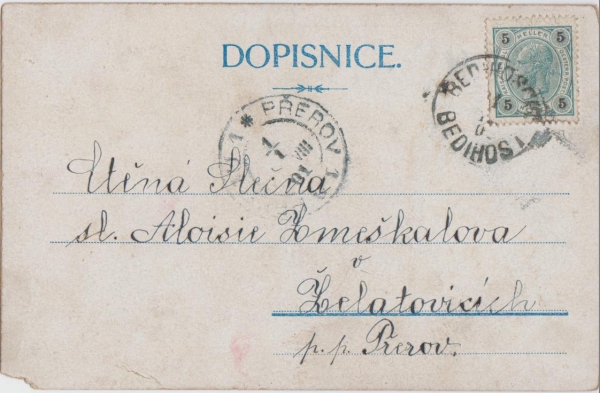 DOPISNICE.
5 HELLER 5
5 5
BEDIHOŠT
* PŘEROV 1
VIII
01
Ctěná Slečna
sl. Aloisie Zmeškalova
v
Želatovicích
p. p. Přerov.